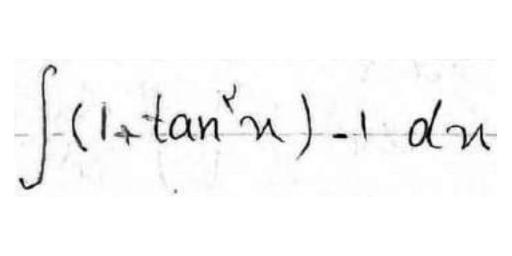 ∫(1+tan²x)-1 dx